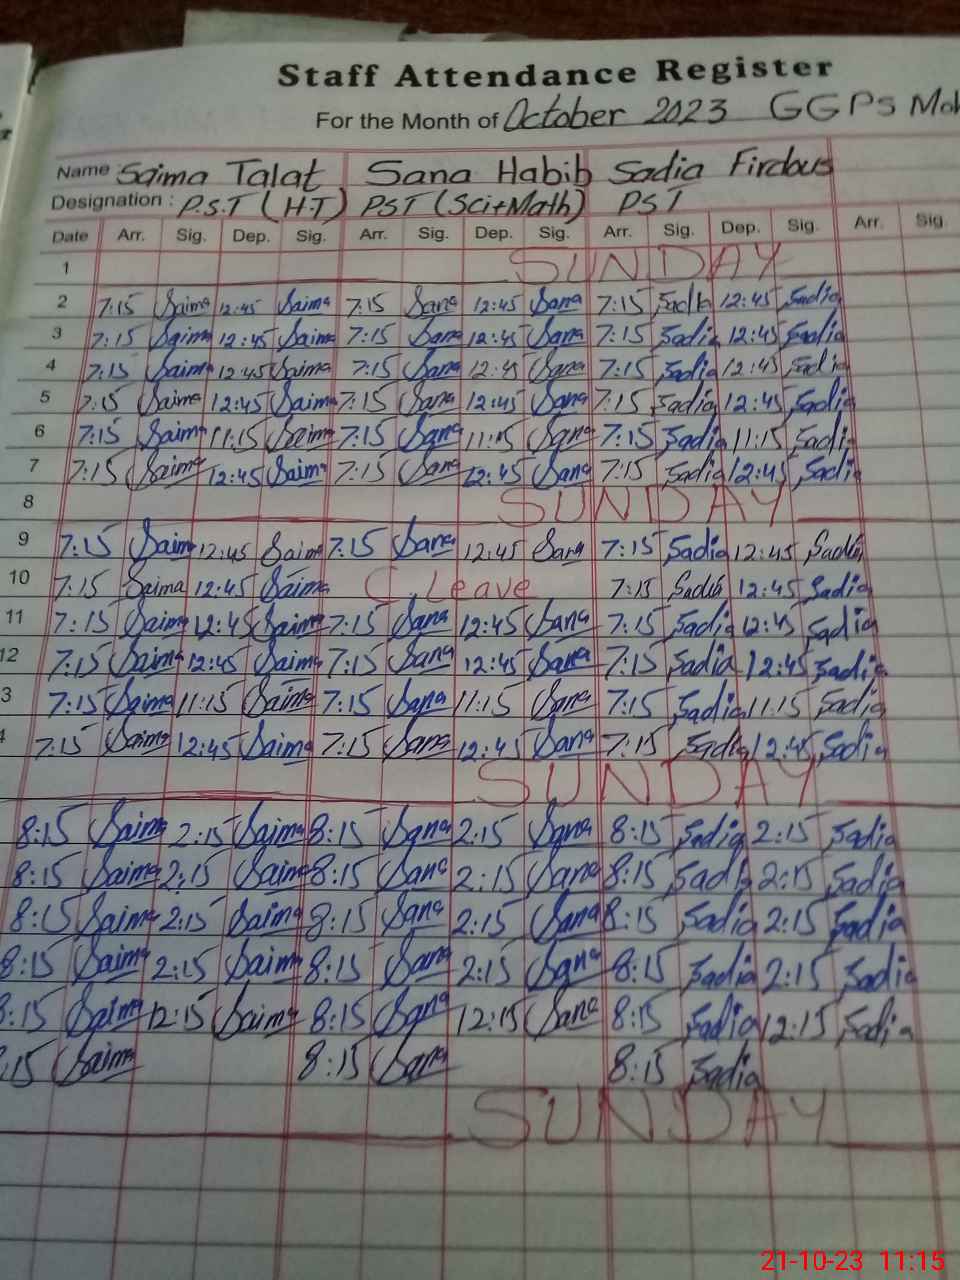 Staff Attendance Register
For the Month of October 2023 GGPS
Name Saima Talat Sana Habib Sadia Firdous
Designation : P.S.T (H.T) PST (Sci+Math) PST
Date Arr. Sig. Dep. Sig. Arr. Sig. Dep. Sig. Arr. Sig. Dep. Sig. Arr. Sig.
1 SUNDAY
2 7:15 Saima 12:45 Saima 7:15 Sana 12:45 Sana 7:15 Sadia 12:45 Sadia
3 7:15 Saima 12:45 Saima 7:15 Sana 12:45 Sana 7:15 Sadia 12:45 Sadia
4 7:15 Saima 12:45 Saima 7:15 Sana 12:45 Sana 7:15 Sadia 12:45 Sadia
5 7:15 Saima 12:45 Saima 7:15 Sana 12:45 Sana 7:15 Sadia 12:45 Sadia
6 7:15 Saima 11:15 Saima 7:15 Sana 11:15 Sana 7:15 Sadia 11:15 Sadia
7 7:15 Saima 12:45 Saima 7:15 Sana 12:45 Sana 7:15 Sadia 12:45 Sadia
8 SUNDAY
9 7:15 Saima 12:45 Saima 7:15 Sana 12:45 Sana 7:15 Sadia 12:45 Sadia
10 7:15 Saima 12:45 Saima C. Leave 7:15 Sadia 12:45 Sadia
11 7:15 Saima 12:45 Saima 7:15 Sana 12:45 Sana 7:15 Sadia 12:45 Sadia
12 7:15 Saima 12:45 Saima 7:15 Sana 12:45 Sana 7:15 Sadia 12:45 Sadia
3 7:15 Saima 11:15 Saima 7:15 Sana 11:15 Sana 7:15 Sadia 11:15 Sadia
4 7:15 Saima 12:45 Saima 7:15 Sana 12:45 Sana 7:15 Sadia 12:45 Sadia
SUNDAY
8:15 Saima 2:15 Saima 8:15 Sana 2:15 Sana 8:15 Sadia 2:15 Sadia
8:15 Saima 2:15 Saima 8:15 Sana 2:15 Sana 8:15 Sadia 2:15 Sadia
8:15 Saima 2:15 Saima 8:15 Sana 2:15 Sana 8:15 Sadia 2:15 Sadia
8:15 Saima 2:15 Saima 8:15 Sana 2:15 Sana 8:15 Sadia 2:15 Sadia
8:15 Saima 12:15 Saima 8:15 Sana 12:15 Sana 8:15 Sadia 12:15 Sadia
:15 Saima 8:15 Sana 8:15 Sadia
SUNDAY
21-10-23 11:15